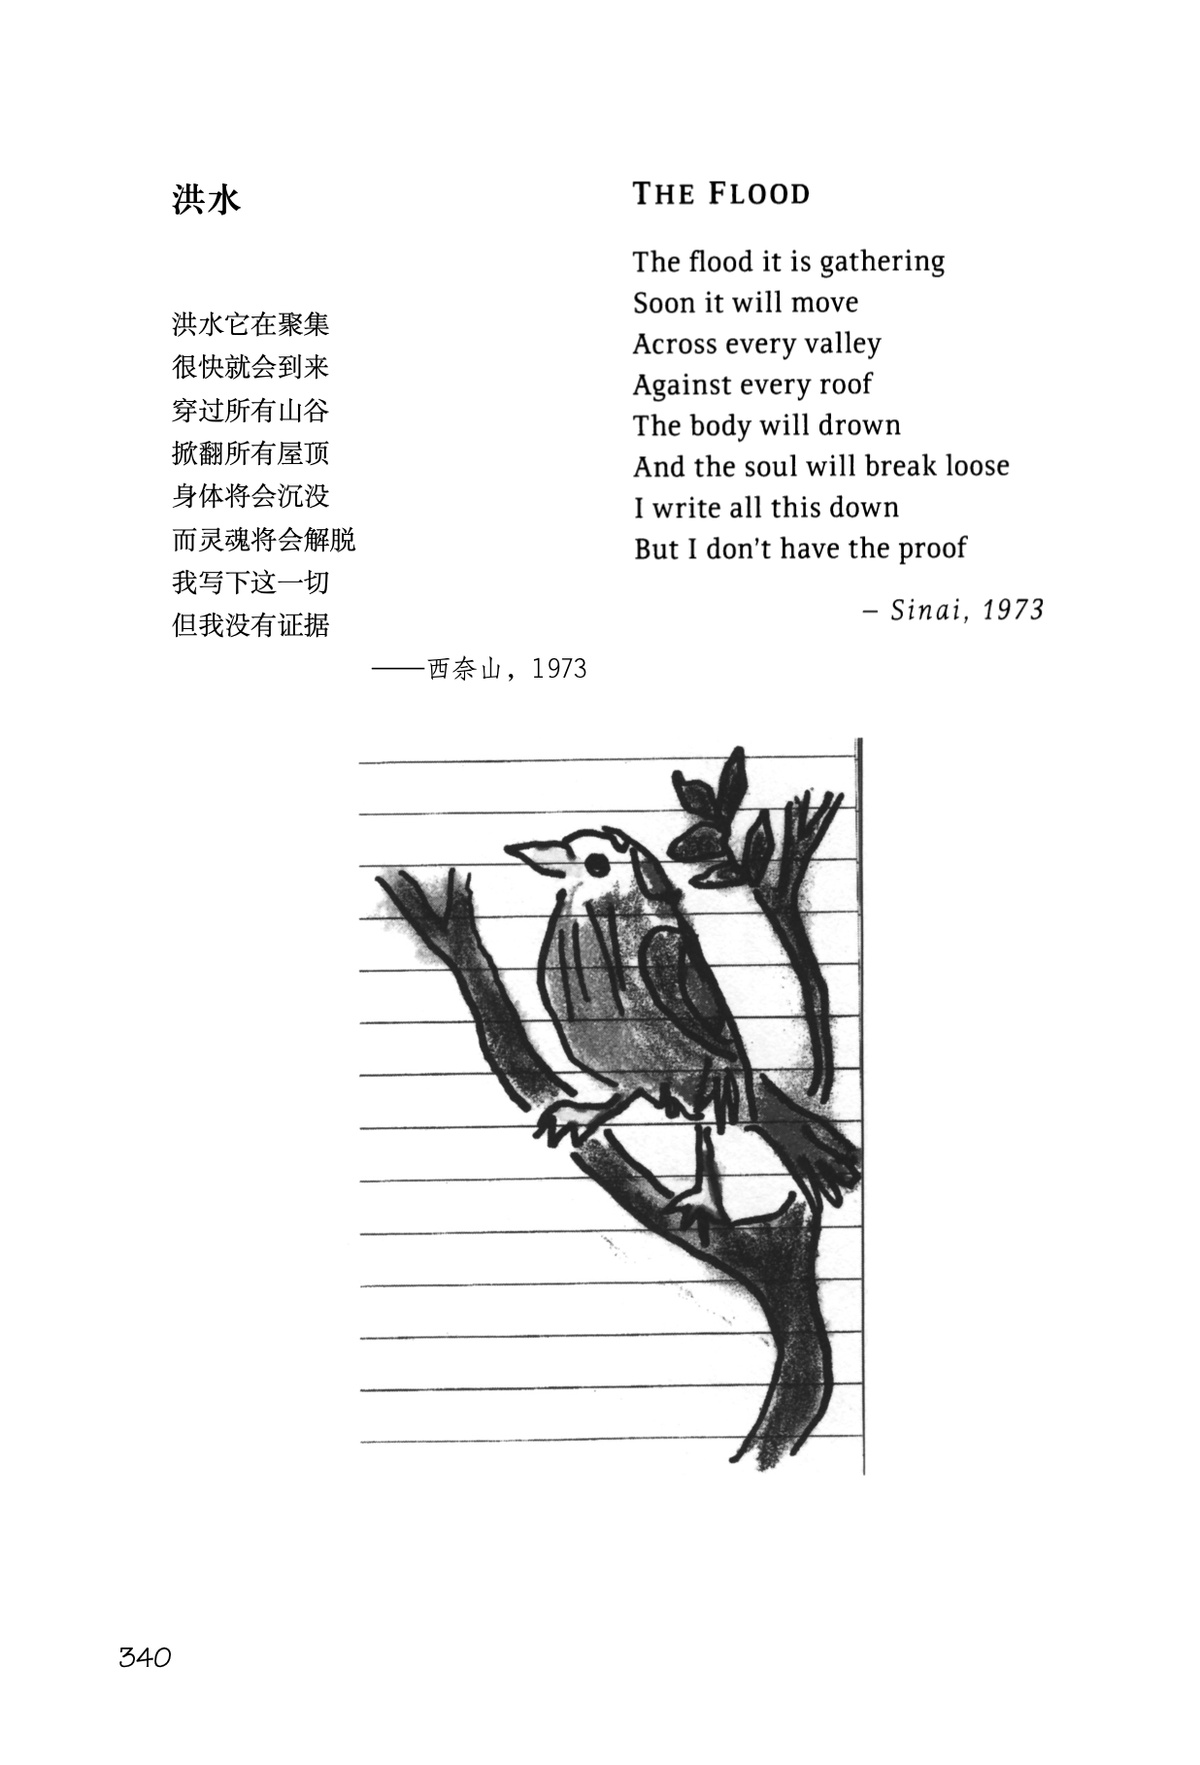 洪水
洪水它在聚集
很快就会到来
穿过所有山谷
掀翻所有屋顶
身体将会沉没
而灵魂将会解脱
我写下这一切
但我没有证据
——西奈山，1973
THE FLOOD
The flood it is gathering
Soon it will move
Across every valley
Against every roof
The body will drown
And the soul will break loose
I write all this down
But I don’t have the proof
– Sinai, 1973
340